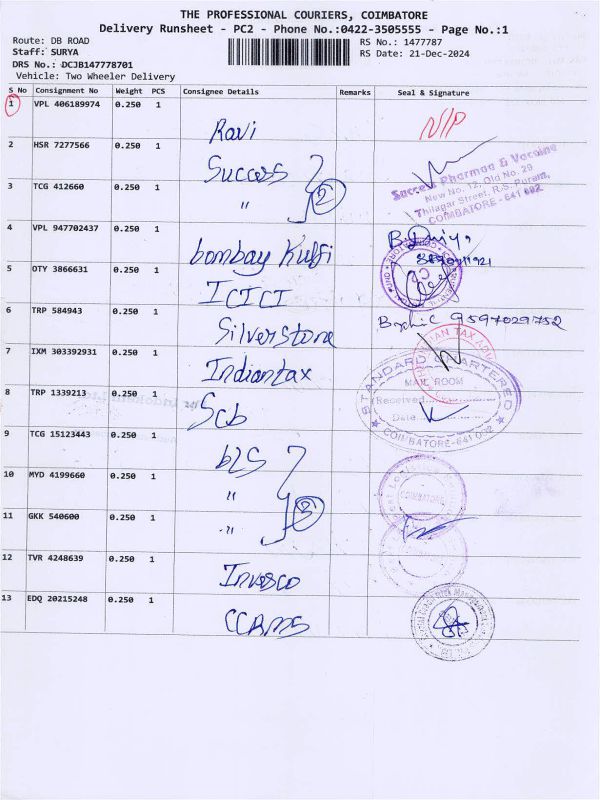 THE PROFESSIONAL COURIERS, COIMBATORE
Delivery Runsheet - PC2 - Phone No.:0422-3505555 - Page No.:1
Route: DB ROAD RS No.: 1477787
Staff: SURYA RS Date: 21-Dec-2024
DRS No.: DCJB147778701
Vehicle: Two Wheeler Delivery
S No Consignment No Weight PCS Consignee Details Remarks Seal & Signature
1 VPL 406189974 0.250 1 Ravi N/P
2 HSR 7277566 0.250 1 Success
Success Pharma & Vaccine
New No. 12, Old No. 29
Thilagar Street, R.S. Puram,
COIMBATORE - 641 002
3 TCG 412660 0.250 1 " 2
4 VPL 947702437 0.250 1 bombay Kulfi
5 OTY 3866631 0.250 1 ICICI
6 TRP 584943 0.250 1 Silverstone 9597029752
7 IXM 303392931 0.250 1 Indiantax
8 TRP 1339213 0.250 1 Scb
STANDARD CHARTERED
MAIL ROOM
Received
Date
COIMBATORE-641 002
9 TCG 15123443 0.250 1 b2S
10 MYD 4199660 0.250 1 " 3
COIMBATORE
11 GKK 540600 0.250 1 "
12 TVR 4248639 0.250 1 Invesco
13 EDQ 20215248 0.250 1 CCRMS